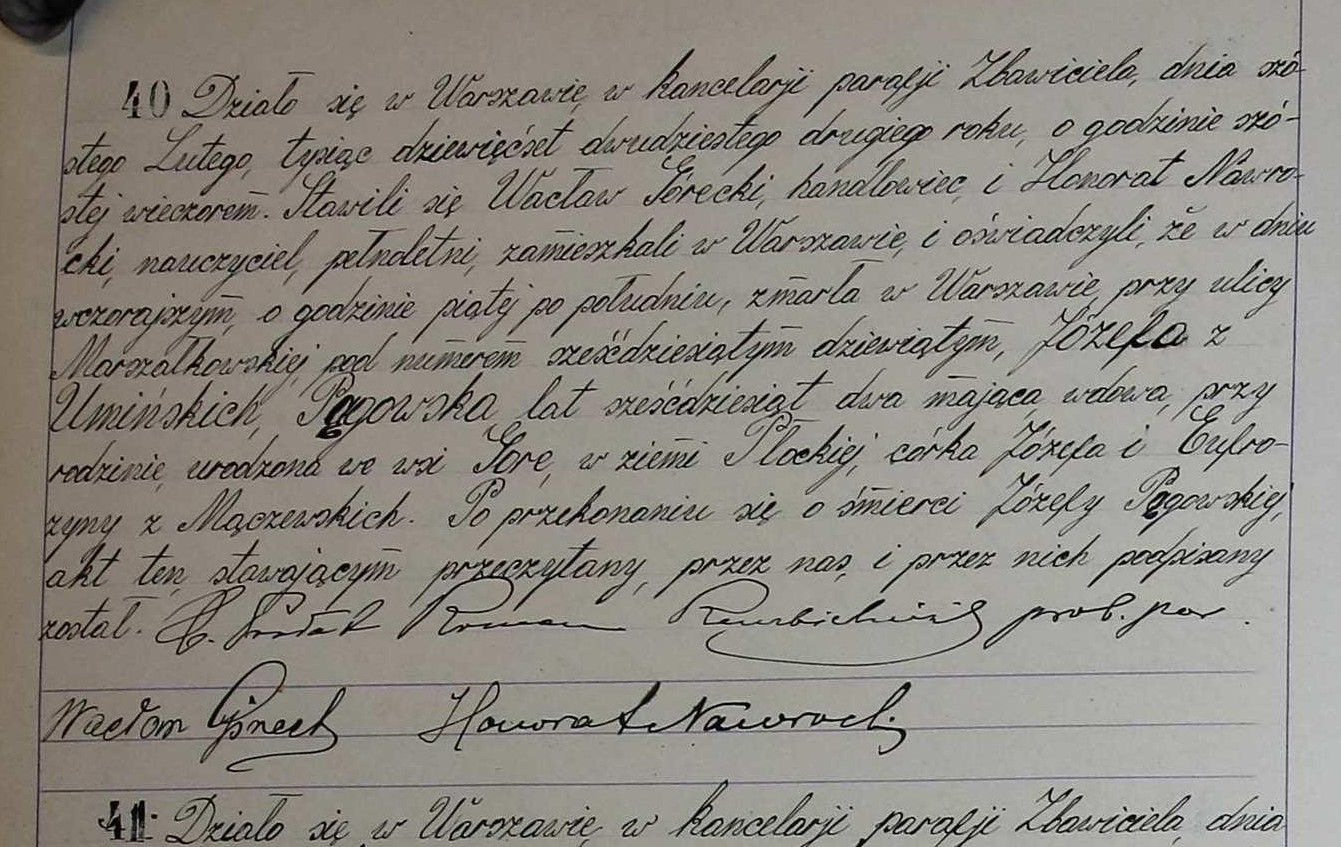 40 Działo się w Warszawie, w kancelarji parafji Zbawiciela, dnia szó-
stego Lutego, tysiąc dziewięćset dwudziestego drugiego roku, o godzinie szó-
stej wieczorem. Stawili się Wacław Górecki, handlowiec, i Honorat Nawro-
cki, nauczyciel, pełnoletni, zamieszkali w Warszawie, i oświadczyli, że w dniu
wczorajszym, o godzinie piątej po południu, zmarła w Warszawie, przy ulicy
Marszałkowskiej pod numerem sześćdziesiątym dziewiątym, Józefa z
Umińskich, Pągowska, lat sześćdziesiąt dwa mająca, wdowa, przy
rodzinie, urodzona we wsi Górę, w ziemi Płockiej, córka Józefa i Eufro-
zyny z Mączewskich. Po przekonaniu się o śmierci Józefy Pągowskiej,
akt ten, stawającym przeczytany, przez nas, i przez nich podpisany
został. Roman prob. par.
Wacław Górecki Honorat Nawrocki
41. Działo się w Warszawie, w kancelarji parafji Zbawiciela, dnia